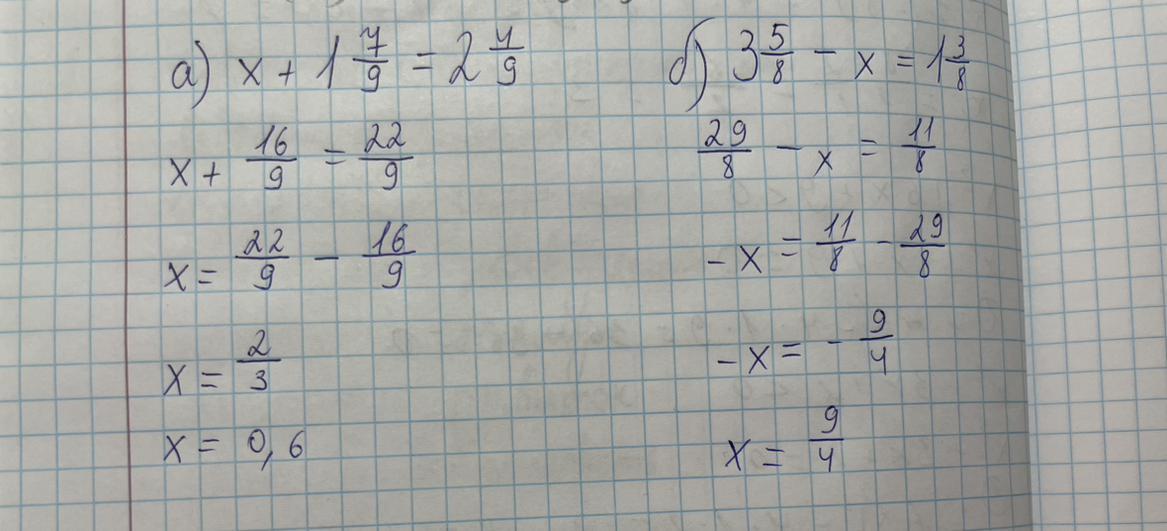 а) x + 1 7/9 = 2 4/9
x + 16/9 = 22/9
x = 22/9 - 16/9
x = 2/3
x = 0,6
б) 3 5/8 - x = 1 3/8
29/8 - x = 11/8
-x = 11/8 - 29/8
-x = - 9/4
x = 9/4